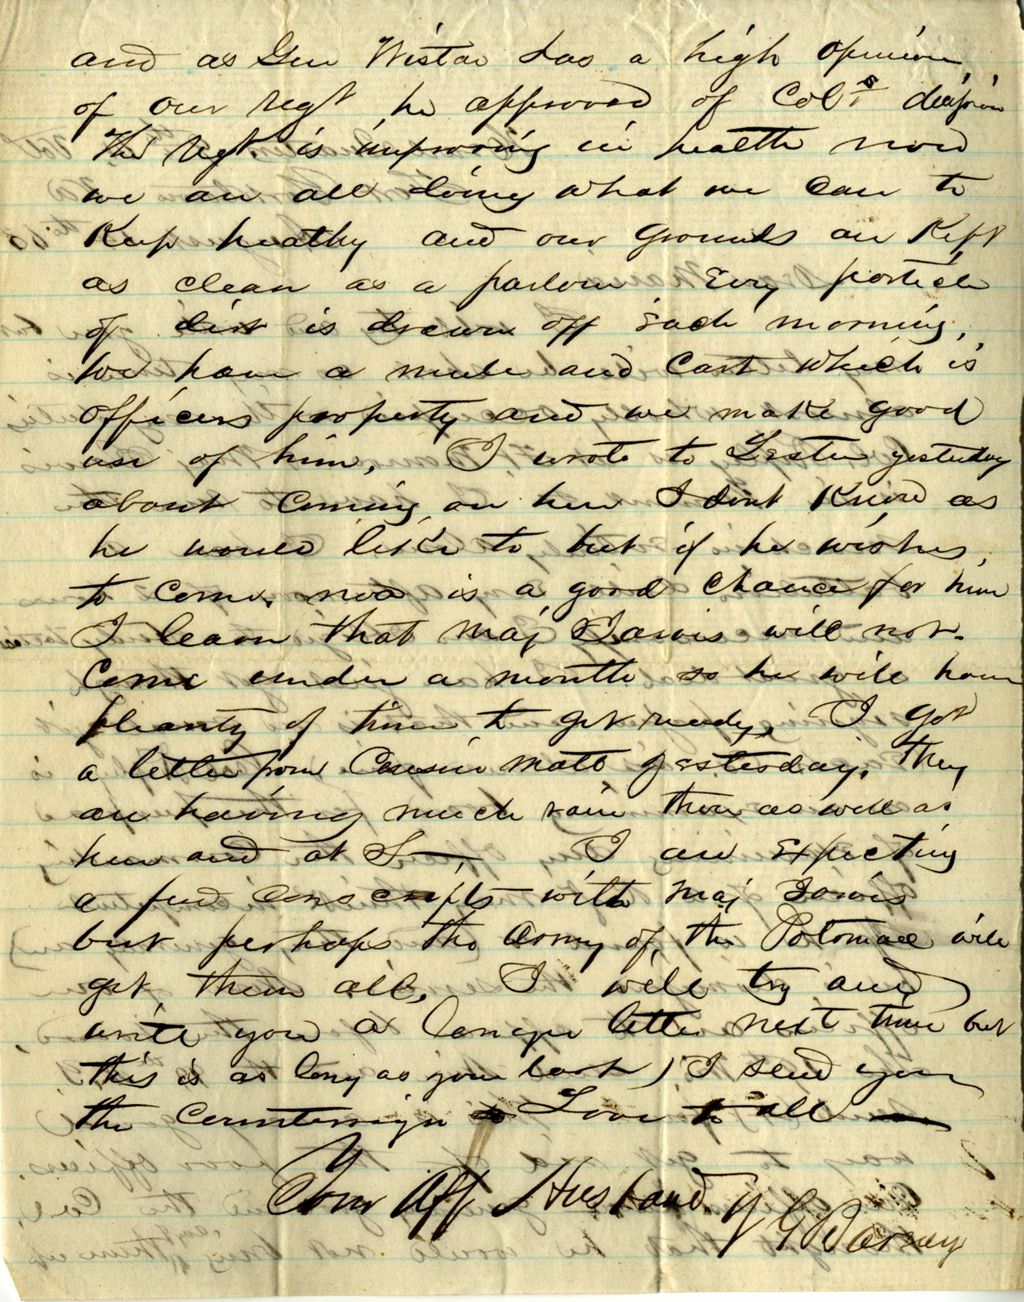 and as Gen Wistar has a high opinion
of our Regt he approved of Cols decision
The Regt is improving in health now
we are all doing what we can to
Keep heathy and our grounds are Kept
as clean as a parlour Every particle
of dirt is drawn off each morning,
We have a mule and Cart which is
officers property and we make good
use of him, I wrote to Lester yesterday
about Coming on here I dont Know as
he would like to but if he wishes
to Come, now is a good Chance for him
I learn that Maj Jarvis will not
Come under a month so he will have
plenty of time to get ready, I got
a letter from Cousin Matt yesterday, they
are having much rain there as well as
here and at S— I am expecting
a few Conscripts with Maj Jarvis
but perhaps the Army of the Potomac will
get them all, I will try and
write you a longer letter next time but
this is as long as your last, I send you
the Countersign Love to all —
Your Aff Husband.
V G Barney